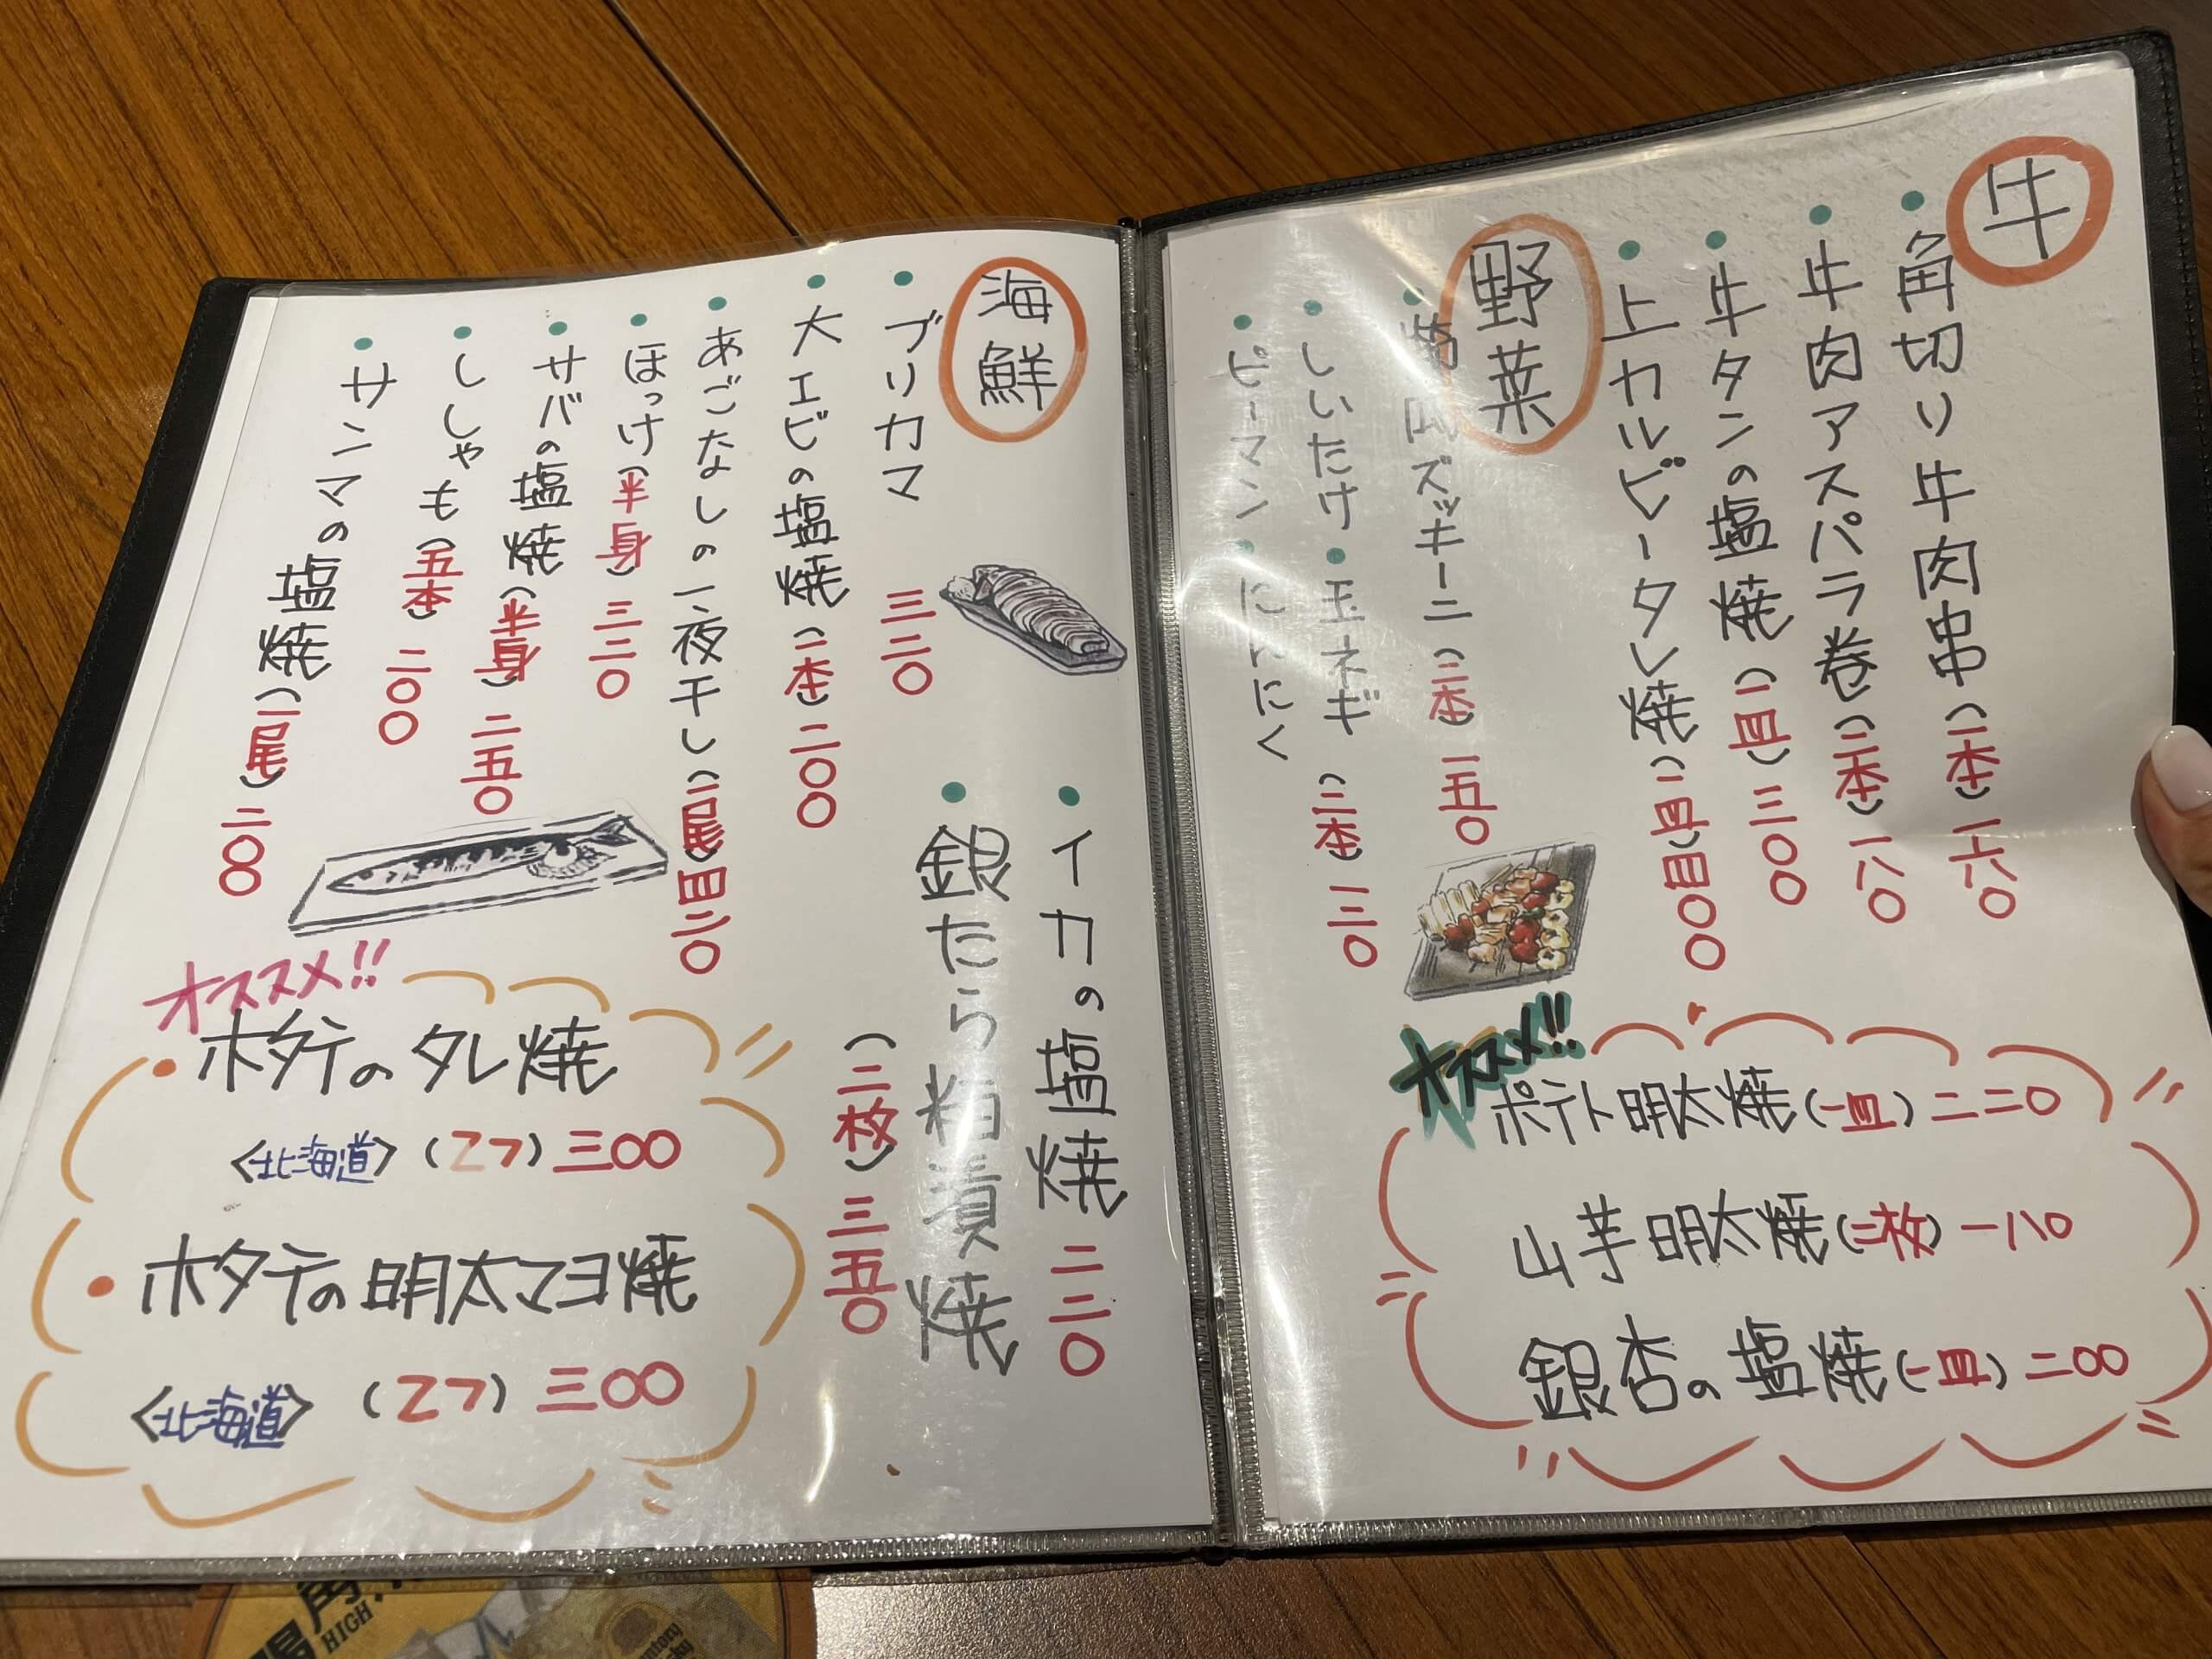 牛
角切り牛肉串(二本)一六〇
牛肉アスパラ巻(二本)一八〇
牛タンの塩焼(一皿)三〇〇
上カルビータレ焼(一皿)四〇〇
野菜
ズッキーニ(二本)一五〇
しいたけ・玉ネギ
ピーマン・にんにく
(二本)一二〇
オススメ!!
ポテト明太焼(一皿)二二〇
山芋明太焼(二枚)一八〇
銀杏の塩焼(一皿)二〇〇
海鮮
ブリカマ 三二〇
大エビの塩焼(二本)二〇〇
あごなしの一夜干し(二尾)四二〇
ほっけ(半身)三二〇
サバの塩焼(半身)二五〇
ししゃも(五本)二〇〇
サンマの塩焼(一尾)二〇〇
イカの塩焼 二三〇
銀たら粕漬焼
(二枚)三五〇
オススメ!!
ホタテのタレ焼
〈北海道〉(二つ)三〇〇
ホタテの明太マヨ焼
〈北海道〉(二つ)三〇〇
HIGH